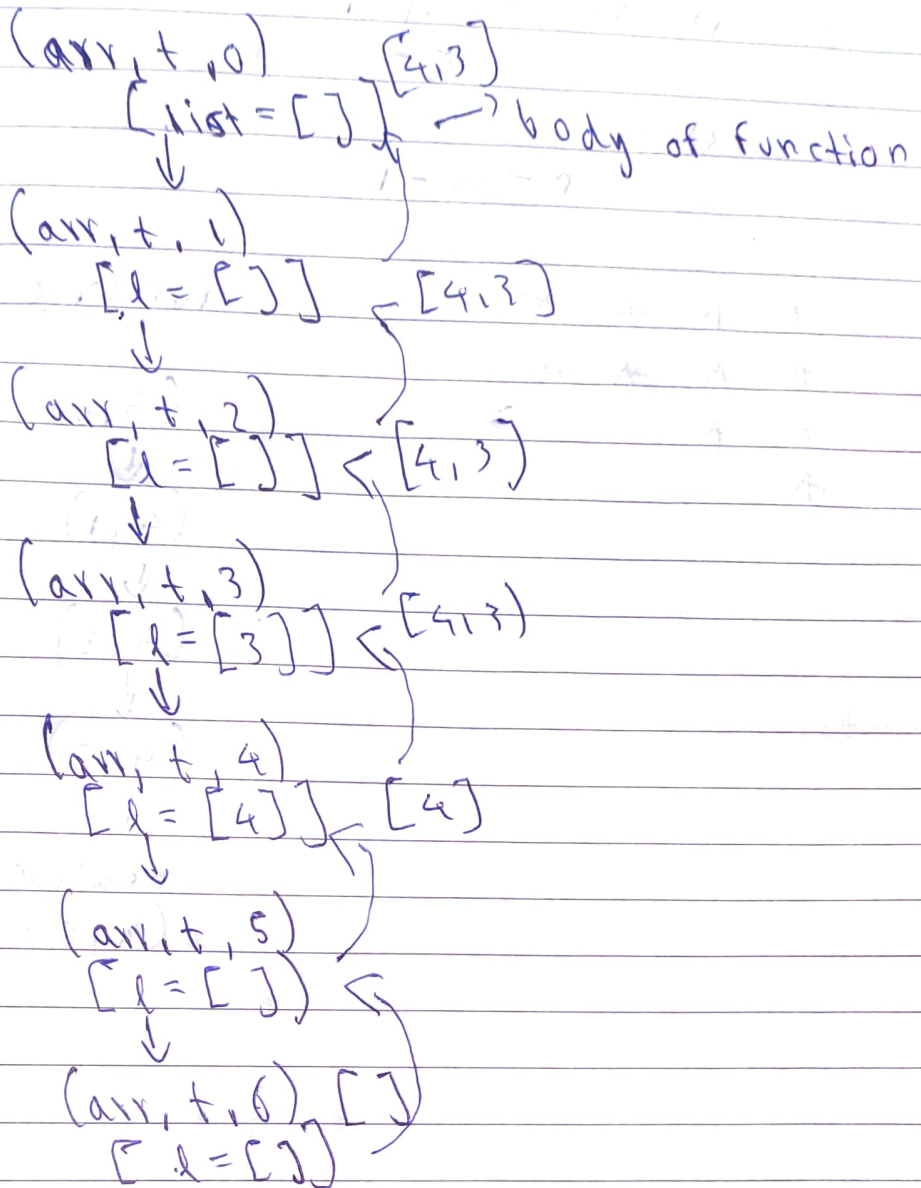 (arr, t, 0) [4,3]
[list = []] → body of function
↓
(arr, t, 1)
[l = []] [4,3]
↓
(arr, t, 2)
[l = []] [4,3)
↓
(arr, t, 3)
[l = [3]] [4,3)
↓
(arr, t, 4)
[l = [4]] [4]
↓
(arr, t, 5)
[l = [])
↓
(arr, t, 6) []
[l = []]